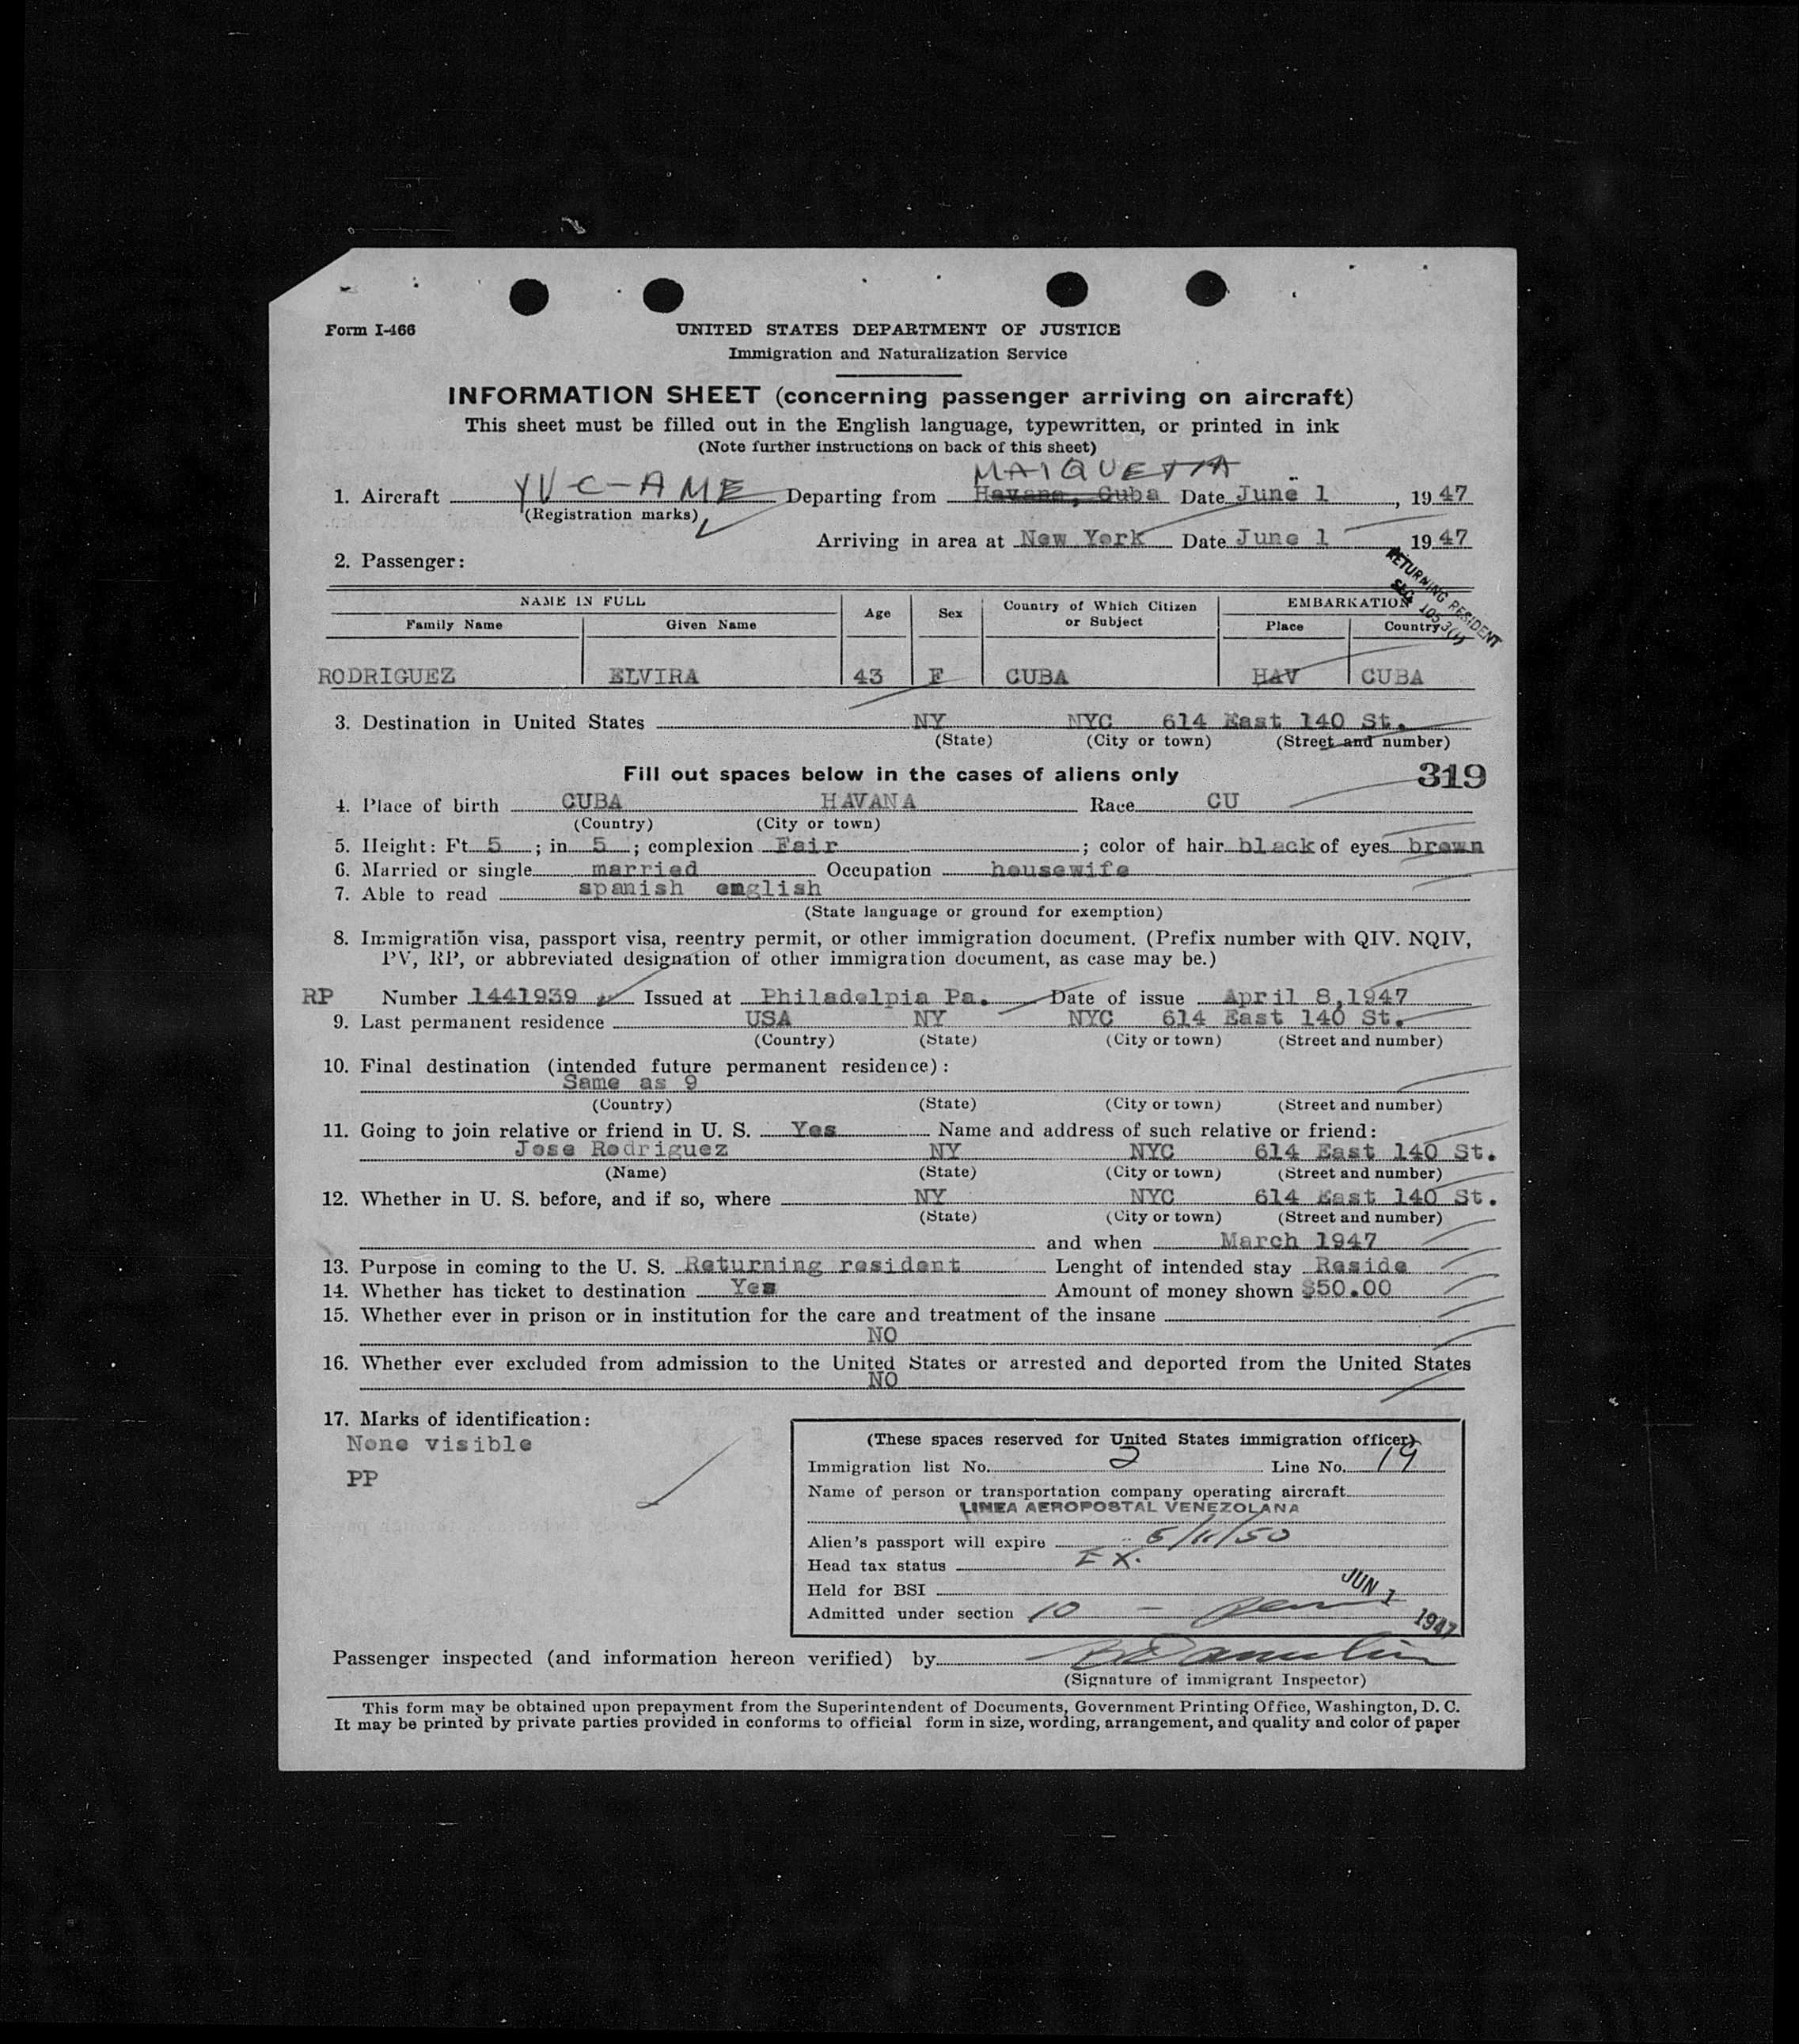 Form I-466
UNITED STATES DEPARTMENT OF JUSTICE
Immigration and Naturalization Service
INFORMATION SHEET (concerning passenger arriving on aircraft)
This sheet must be filled out in the English language, typewritten, or printed in ink
(Note further instructions on back of this sheet)
MAIQUETIA
1. Aircraft YV-C-AME Departing from Havana, Cuba Date June 1, 1947
(Registration marks)
Arriving in area at New York Date June 1 1947
2. Passenger:
RETURNING RESIDENT
SEC 105.3(1)
NAME IN FULL Age Sex Country of Which Citizen or Subject EMBARKATION
Family Name Given Name Place Country
RODRIGUEZ ELVIRA 43 F CUBA HAV CUBA
3. Destination in United States NY NYC 614 East 140 St.
(State) (City or town) (Street and number)
Fill out spaces below in the cases of aliens only 319
4. Place of birth CUBA HAVANA Race CU
(Country) (City or town)
5. Height: Ft 5 ; in 5 ; complexion Fair ; color of hair black of eyes brown
6. Married or single married Occupation housewife
7. Able to read spanish english
(State language or ground for exemption)
8. Immigration visa, passport visa, reentry permit, or other immigration document. (Prefix number with QIV. NQIV,
PV, RP, or abbreviated designation of other immigration document, as case may be.)
RP Number 1441939 Issued at Philadelpia Pa. Date of issue April 8,1947
9. Last permanent residence USA NY NYC 614 East 140 St.
(Country) (State) (City or town) (Street and number)
10. Final destination (intended future permanent residence):
Same as 9
(Country) (State) (City or town) (Street and number)
11. Going to join relative or friend in U. S. Yes Name and address of such relative or friend:
Jose Rodriguez NY NYC 614 East 140 St.
(Name) (State) (City or town) (Street and number)
12. Whether in U. S. before, and if so, where NY NYC 614 East 140 St.
(State) (City or town) (Street and number)
and when March 1947
13. Purpose in coming to the U. S. Returning resident Lenght of intended stay Reside
14. Whether has ticket to destination Yes Amount of money shown $50.00
15. Whether ever in prison or in institution for the care and treatment of the insane
NO
16. Whether ever excluded from admission to the United States or arrested and deported from the United States
NO
17. Marks of identification:
None visible
PP
(These spaces reserved for United States immigration officer)
Immigration list No. 2 Line No. 19
Name of person or transportation company operating aircraft
LINEA AEROPOSTAL VENEZOLANA
Alien's passport will expire 6/11/50
Head tax status EX.
Held for BSI
JUN 1 1947
Admitted under section 10 -
Passenger inspected (and information hereon verified) by
(Signature of immigrant Inspector)
This form may be obtained upon prepayment from the Superintendent of Documents, Government Printing Office, Washington, D. C.
It may be printed by private parties provided in conforms to official form in size, wording, arrangement, and quality and color of paper